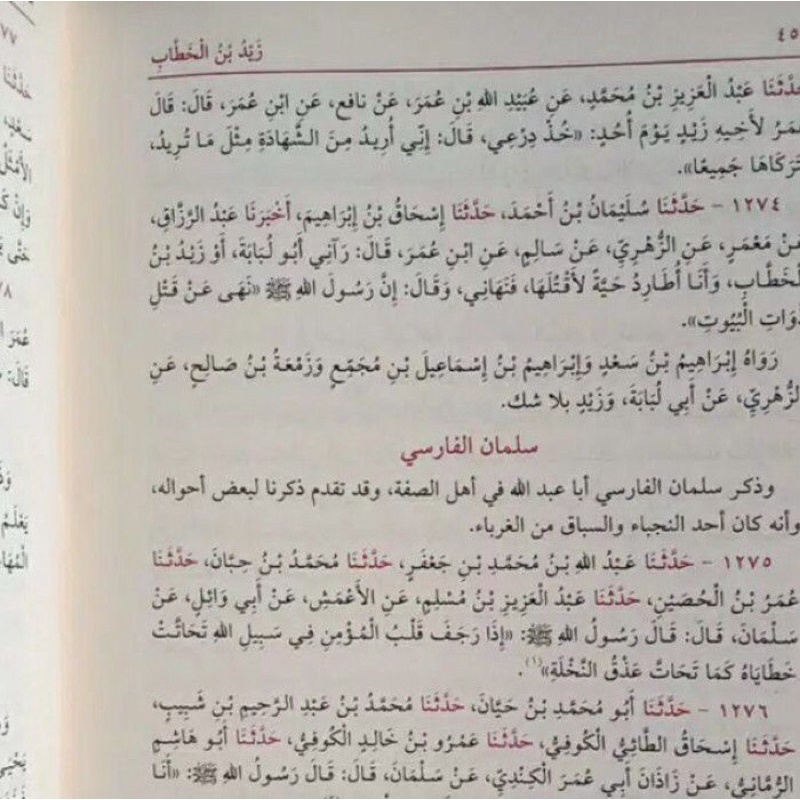 ٤٥
زَيْدُ بْنُ الْخَطَّابِ
حَدَّثَنَا عَبْدُ الْعَزِيزِ بْنُ مُحَمَّدٍ، عَنِ عُبَيْدِ اللهِ بْنِ عُمَرَ، عَنْ نافع، عَنِ ابْنِ عُمَرَ، قَالَ: قَالَ
عُمَرُ لأَخِيهِ زَيْدٍ يَوْمَ أُحُدٍ: «خُذْ دِرْعِي، قَالَ: إِنِّي أُرِيدُ مِنَ الشَّهَادَةِ مِثْلَ مَا تُرِيدُ،
فَتَرَكَاهَا جَمِيعًا».
١٢٧٤ - حَدَّثَنَا سُلَيْمَانُ بْنُ أَحْمَدَ، حَدَّثَنَا إِسْحَاقُ بْنُ إِبْرَاهِيمَ، أَخْبَرَنَا عَبْدُ الرَّزَّاقِ،
عَنْ مَعْمَرٍ، عَنِ الزُّهْرِيِّ، عَنْ سَالِمٍ، عَنِ ابْنِ عُمَرَ، قَالَ: رَآنِي أَبُو لُبَابَةَ، أَوْ زَيْدُ بْنُ
الْخَطَّابِ، وَأَنَا أُطَارِدُ حَيَّةً لأَقْتُلَهَا، فَنَهَانِي، وَقَالَ: إِنَّ رَسُولَ اللهِ ﷺ «نَهَى عَنْ قَتْلِ
ذَوَاتِ الْبُيُوتِ».
رَوَاهُ إِبْرَاهِيمُ بْنُ سَعْدٍ وَإِبْرَاهِيمُ بْنُ إِسْمَاعِيلَ بْنِ مُجَمِّعٍ وَزَمْعَةُ بْنُ صَالِحٍ، عَنِ
الزُّهْرِيِّ، عَنْ أَبِي لُبَابَةَ، وَزَيْدٍ بلا شك.
سلمان الفارسي
وذكر سلمان الفارسي أبا عبد الله في أهل الصفة، وقد تقدم ذكرنا لبعض أحواله،
وأنه كان أحد النجباء والسباق من الغرباء.
١٢٧٥ - حَدَّثَنَا عَبْدُ اللهِ بْنُ مُحَمَّدِ بْنِ جَعْفَرٍ، حَدَّثَنَا مُحَمَّدُ بْنُ حِبَّانَ، حَدَّثَنَا
عُمَرُ بْنُ الْحُصَيْنِ، حَدَّثَنَا عَبْدُ الْعَزِيزِ بْنُ مُسْلِمٍ، عَنِ الأَعْمَشِ، عَنْ أَبِي وَائِلٍ، عَنْ
سَلْمَانَ، قَالَ: قَالَ رَسُولُ اللهِ ﷺ: «إِذَا رَجَفَ قَلْبُ الْمُؤْمِنِ فِي سَبِيلِ اللهِ تَحَاتَّتْ
خَطَايَاهُ كَمَا تَحَاتَ عَذْقُ النَّخْلَةِ»(١).
١٢٧٦ - حَدَّثَنَا أَبُو مُحَمَّدِ بْنُ حَيَّانَ، حَدَّثَنَا مُحَمَّدُ بْنُ عَبْدِ الرَّحِيمِ بْنِ شَبِيبٍ،
حَدَّثَنَا إِسْحَاقُ الطَّائِيُّ الْكُوفِيُّ، حَدَّثَنَا عَمْرُو بْنُ خَالِدٍ الْكُوفِيُّ، حَدَّثَنَا أَبُو هَاشِمٍ
الرُّمَّانِيُّ، عَنْ زَاذَانَ أَبِي عُمَرَ الْكِنْدِيِّ، عَنْ سَلْمَانَ، قَالَ: قَالَ رَسُولُ اللهِ ﷺ: «أَنَا